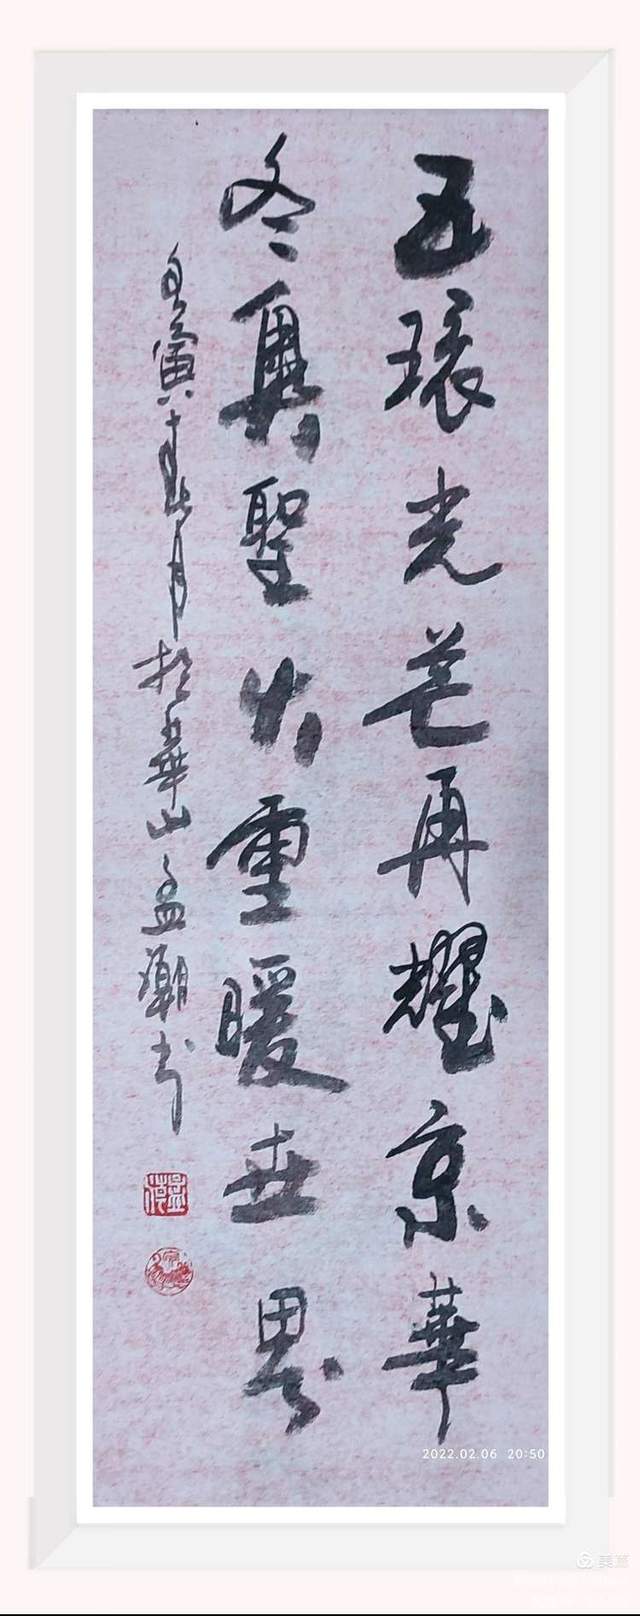 五環光芒再耀京華
冬奧聖火重暖世界
壬寅春月於華山孟潮书
2022.02.06 20:50
美篇